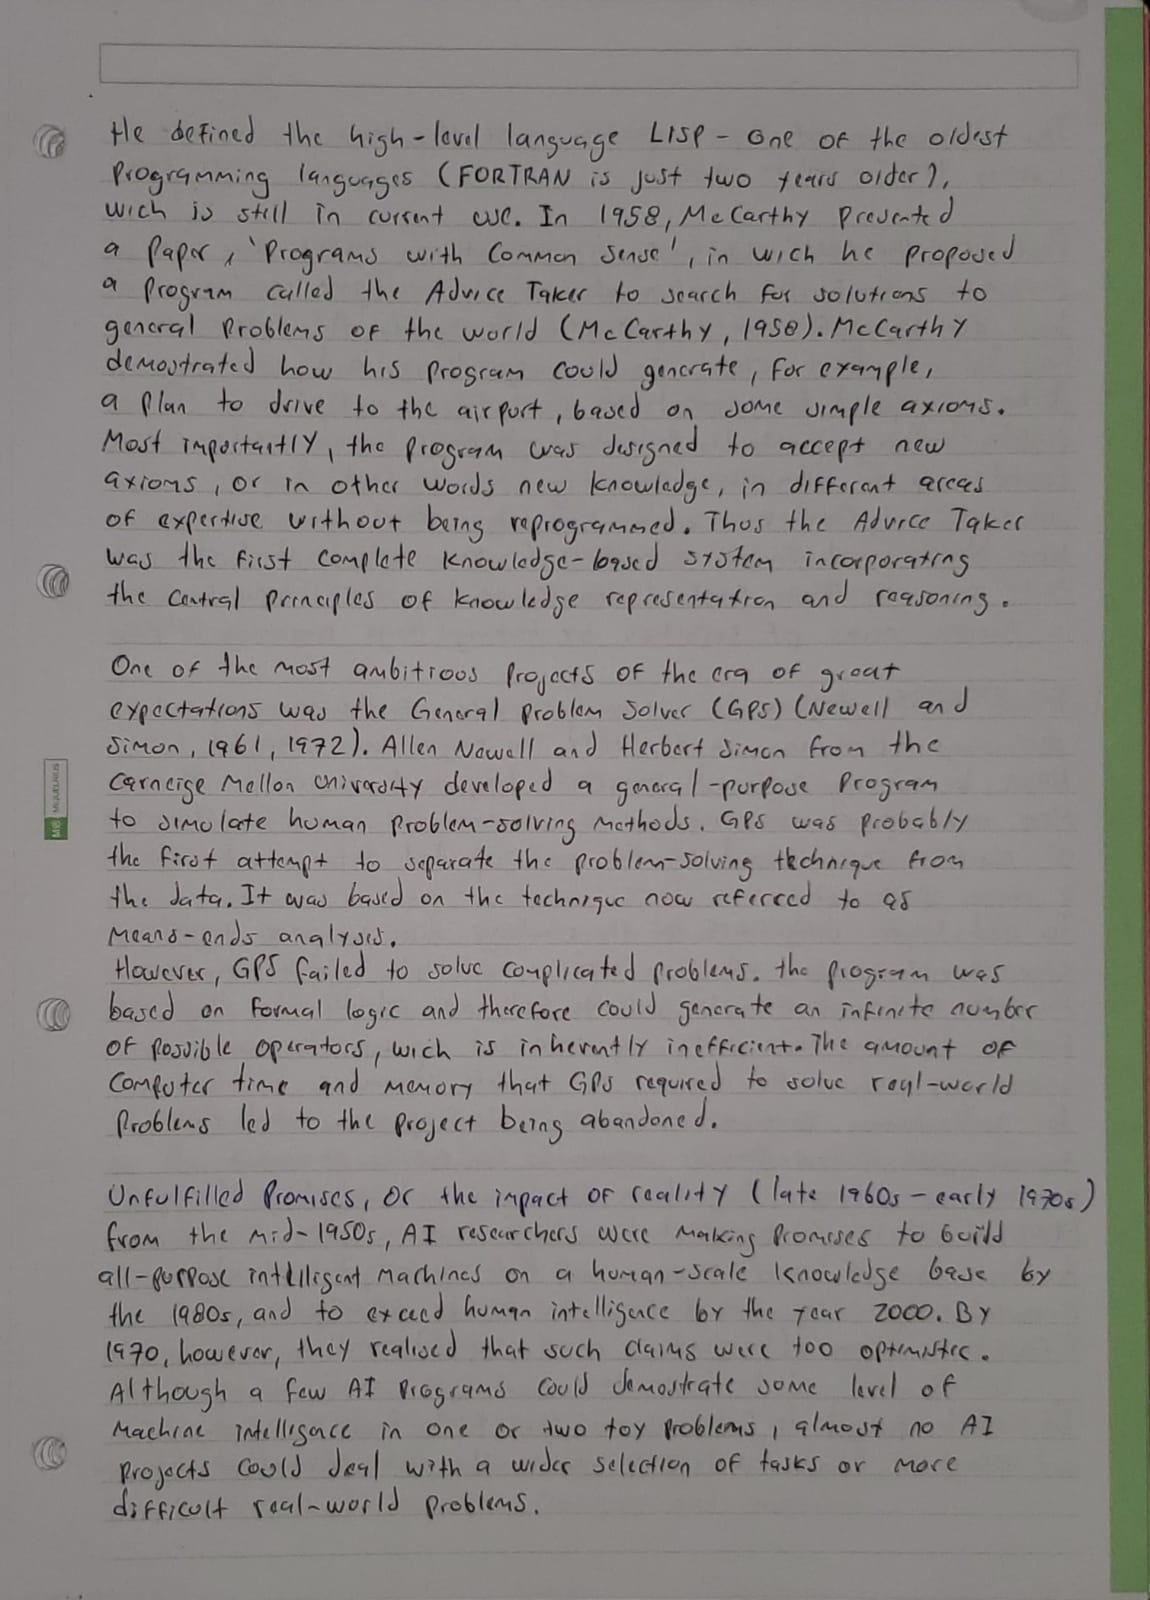 He defined the high-level language LISP - one of the oldest
programming languages (FORTRAN is just two years older),
wich is still in current use. In 1958, McCarthy presented
a paper, 'Programs with Common Sense', in wich he proposed
a program called the Advice Taker to search for solutions to
general problems of the world (McCarthy, 1958). McCarthy
demostrated how his program could generate, for example,
a plan to drive to the airport, based on some simple axioms.
Most importantly, the program was designed to accept new
axioms, or in other words new knowledge, in different areas
of expertise without being reprogrammed. Thus the Advice Taker
was the first complete knowledge-based system incorporating
the central principles of knowledge representation and reasoning.
One of the most ambitious projects of the era of great
expectations was the General Problem Solver (GPS) (Newell and
Simon, 1961, 1972). Allen Newell and Herbert Simon from the
Carneige Mellon University developed a general-purpose program
to simulate human problem-solving methods. GPS was probably
the first attempt to separate the problem-solving technique from
the data. It was based on the technique now referred to as
means-ends analysis.
However, GPS failed to solve complicated problems. the program was
based on formal logic and therefore could generate an infinite number
of possible operators, wich is inherently inefficient. The amount of
computer time and memory that GPS required to solve real-world
problems led to the project being abandoned.
Unfulfilled Promises, or the impact of reality (late 1960s - early 1970s)
from the mid-1950s, AI researchers were making promises to build
all-purpose intelligent machines on a human-scale knowledge base by
the 1980s, and to exceed human intelligence by the year 2000. By
1970, however, they realised that such claims were too optimistic.
Although a few AI programs could demostrate some level of
machine intelligence in one or two toy problems, almost no AI
projects could deal with a wider selection of tasks or more
difficult real-world problems.